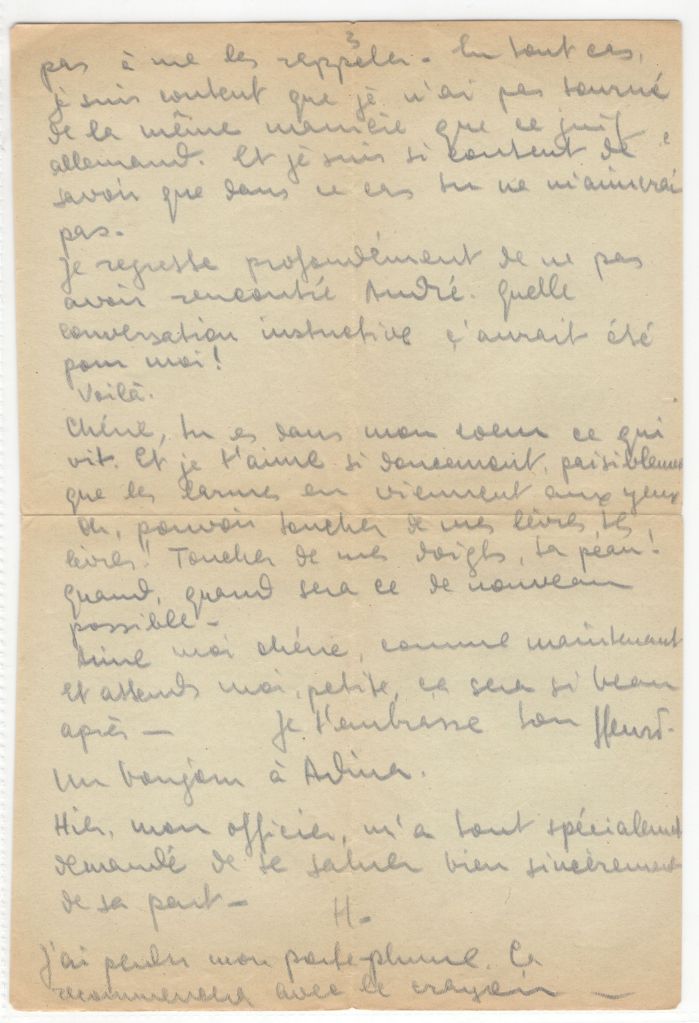 3
pas à me les rappeler - En tout cas,
je suis content que je n'ai pas tourné
de la même manière que ce juif
allemand. Et je suis si content de
savoir que dans ce cas tu ne m'aimerai
pas.
Je regrette profondément de ne pas
avoir rencontré André. Quelle
conversation instructive ç'aurait été
pour moi!
Voilà.
Chérie, tu es dans mon coeur ce qui
vit. Et je t'aime si doucement, paisiblement
que les larmes en viennent aux yeux
Oh, pouvoir toucher de mes lèvres tes
lèvres! Toucher de mes doigts, ta peau!
Quand, quand sera ce de nouveau
possible -
Aime moi chérie, comme maintenant
et attends moi, petite, ça sera si beau
après — Je t'embrasse ton
Un bonjour à Adina.
Hier, mon officier, m'a tout spécialement
demandé de te saluer bien sincèrement
de sa part - H-
J'ai perdu mon porte-plume. Ça
recommencera avec le crayon —